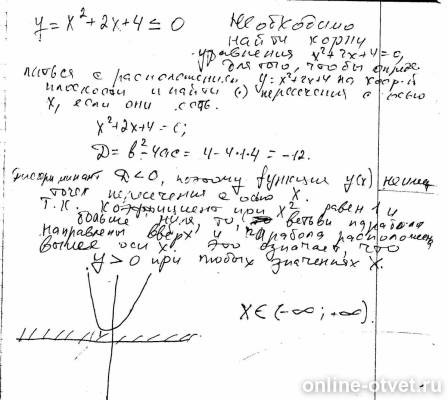 y = x²+2x+4 ≤ 0 Необходимо
найти корни
уравнения x²+2x+4=0,
для того, чтобы опреде-
литься с расположением y=x²+2x+4 на коорд.
плоскости и найти (·) пересечения с осью
x, если они есть.
x²+2x+4=0;
D=b²-4ac = 4-4·1·4=-12.
Дискриминант D<0, поэтому функция y(x) не имеет
точек пересечения с осью X.
Т.к. коэффициент при x² равен 1 и
больше нуля, то ветви параболы
направлены вверх, и парабола расположена
выше оси x. Это означает, что
y>0 при любых значениях X.
X∈(-∞;+∞).
online-otvet.ru